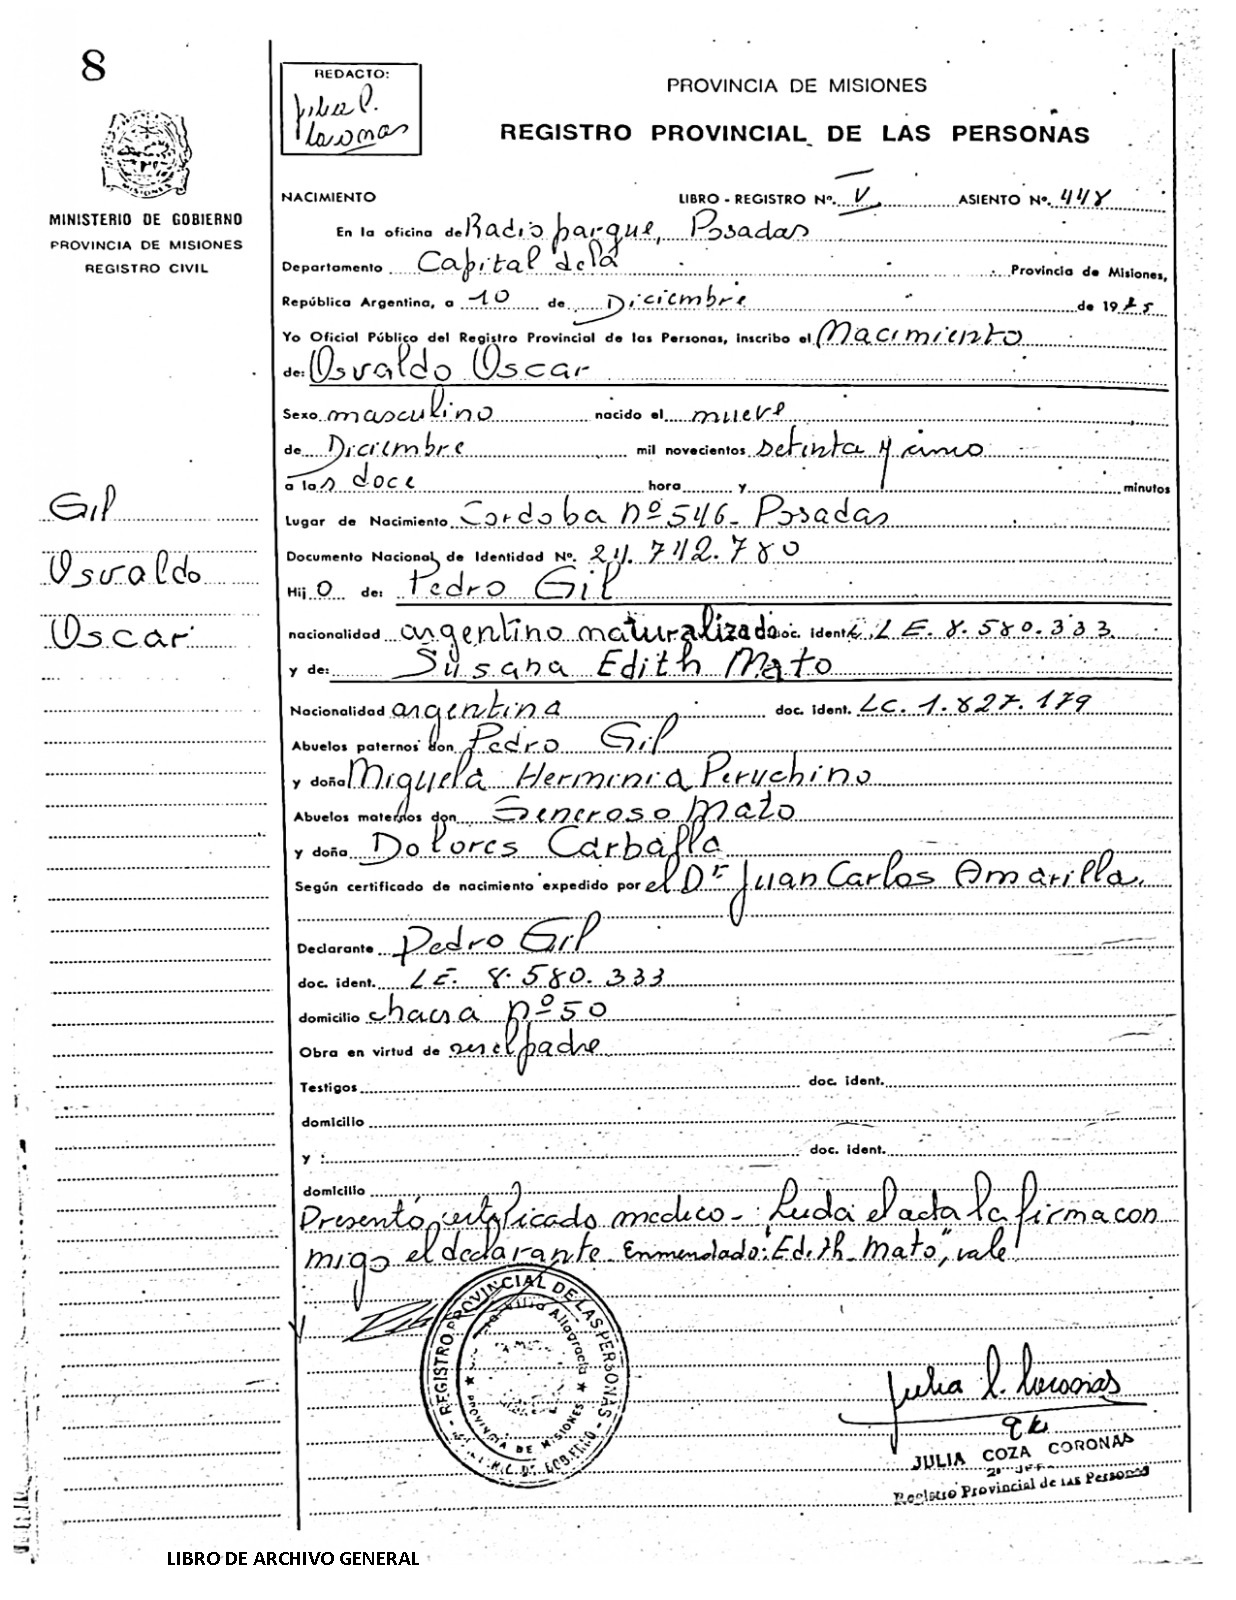 8
REDACTO:
Julia C.
Coronas
PROVINCIA DE MISIONES
REGISTRO PROVINCIAL DE LAS PERSONAS
MISIONES
MINISTERIO DE GOBIERNO
PROVINCIA DE MISIONES
REGISTRO CIVIL
NACIMIENTO LIBRO - REGISTRO Nº. V ASIENTO Nº. 448
En la oficina de Radio parque, Posadas
Departamento Capital de la Provincia de Misiones,
República Argentina, a 10 de Diciembre de 1975
Yo Oficial Público del Registro Provincial de las Personas, inscribo el Nacimiento
de: Osvaldo Oscar
Sexo masculino nacido el nueve
de Diciembre mil novecientos setenta y cinco
a las doce hora y minutos
Lugar de Nacimiento Cordoba nº 546 - Posadas
Documento Nacional de Identidad Nº. 24.742.780
Hijo de: Pedro Gil
nacionalidad argentino naturalizado doc. ident. L.E. 8.580.333
y de: Susana Edith Mato
Nacionalidad argentina doc. ident. LC. 1.827.179
Abuelos paternos don Pedro Gil
y doña Miguela Herminia Peruchino
Abuelos maternos don Generoso Mato
y doña Dolores Carballa
Según certificado de nacimiento expedido por el Dr Juan Carlos Amarilla.
Declarante Pedro Gil
doc. ident. LE. 8.580.333
domicilio chacra nº 50
Obra en virtud de ser el padre
Testigos doc. ident.
domicilio
y : doc. ident.
domicilio
Presentó certificado medico - Leida el acta la firma con
migo el declarante Enmendado: "Edith Mato", vale
Gil
Osvaldo
Oscar
REGISTRO PROVINCIAL DE LAS PERSONAS
Villa Altagracia
PROVINCIA DE MISIONES
Julia C. Coronas
JULIA COZA CORONAS
Registro Provincial de las Personas
LIBRO DE ARCHIVO GENERAL